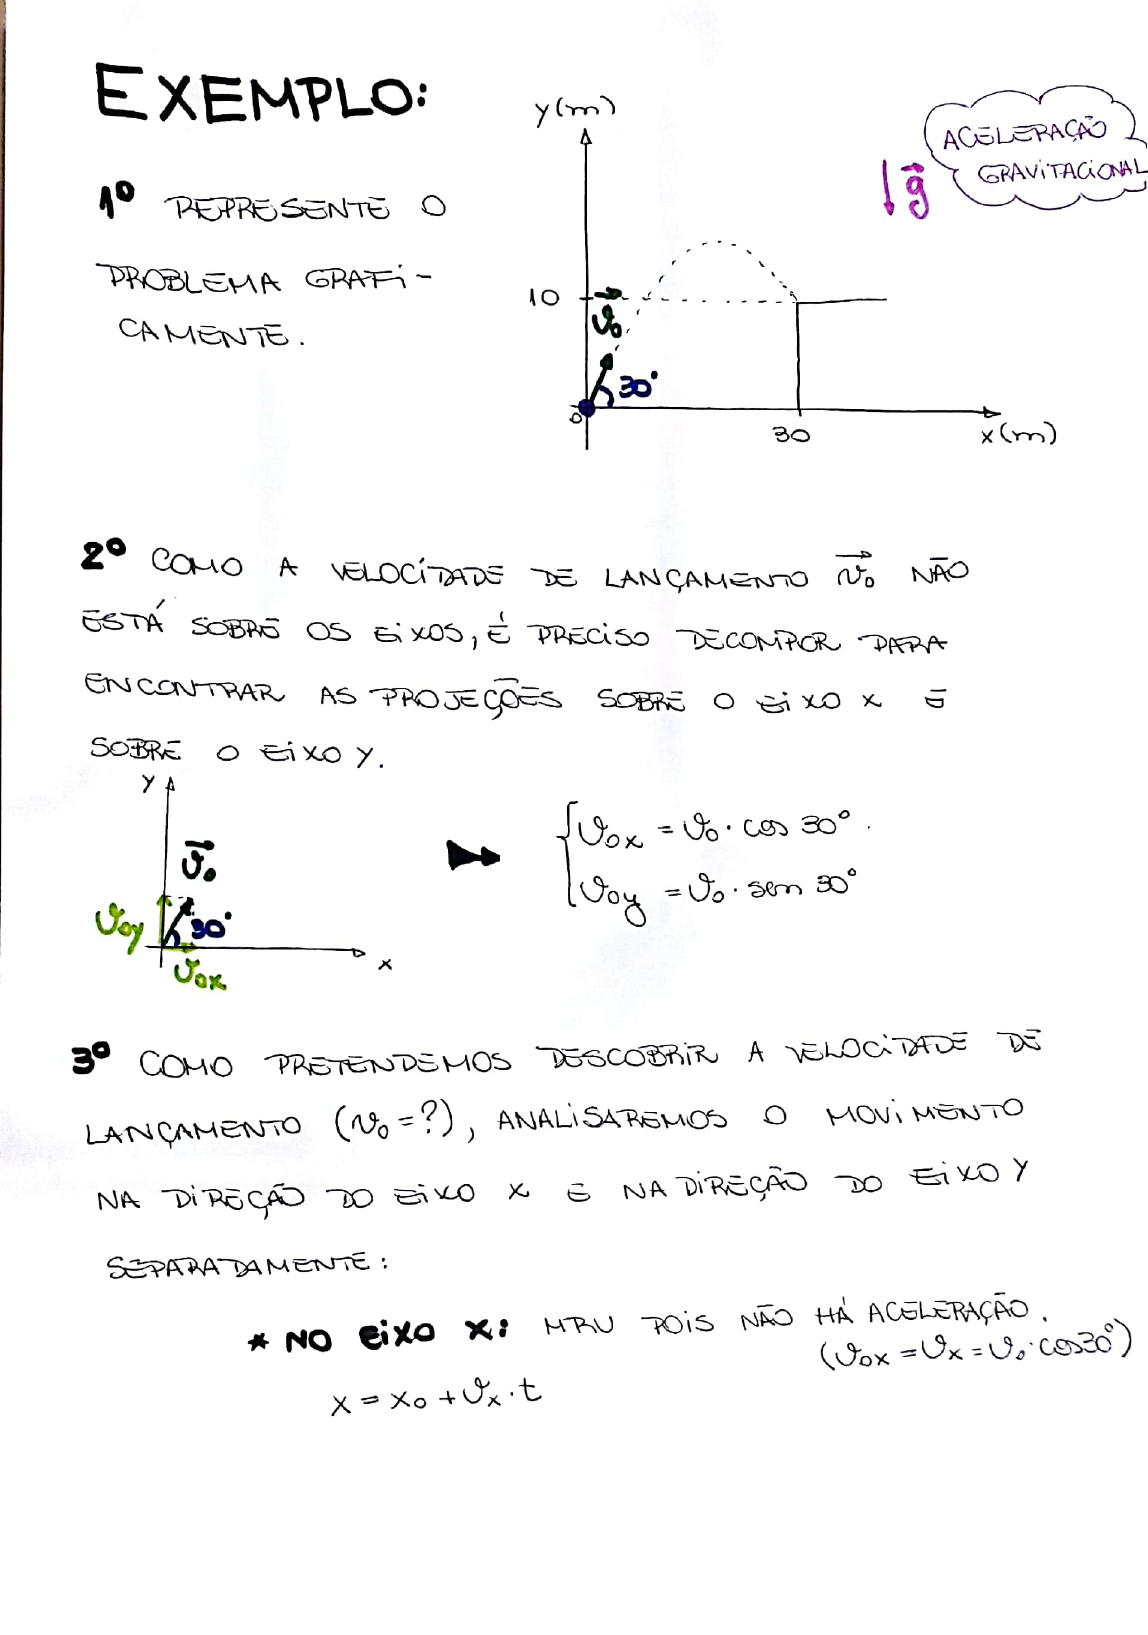 EXEMPLO:
1º REPRESENTE O
PROBLEMA GRAFI-
CAMENTE.
y(m)
10
v₀
30°
0
30
x(m)
g
ACELERAÇÃO
GRAVITACIONAL
2º COMO A VELOCIDADE DE LANÇAMENTO v₀ NÃO
ESTÁ SOBRE OS EIXOS, É PRECISO DECOMPOR PARA
ENCONTRAR AS PROJEÇÕES SOBRE O EIXO X E
SOBRE O EIXO Y.
Y
v₀
v₀y
30°
x
v₀x
v₀x = v₀ · cos 30°.
v₀y = v₀ · sen 30°
3º COMO PRETENDEMOS DESCOBRIR A VELOCIDADE DE
LANÇAMENTO (v₀ = ?), ANALISAREMOS O MOVIMENTO
NA DIREÇÃO DO EIXO X E NA DIREÇÃO DO EIXO Y
SEPARADAMENTE:
* NO EIXO X: MRU POIS NÃO HÁ ACELERAÇÃO.
(v₀x = vx = v₀ · cos30°)
x = x₀ + vx · t